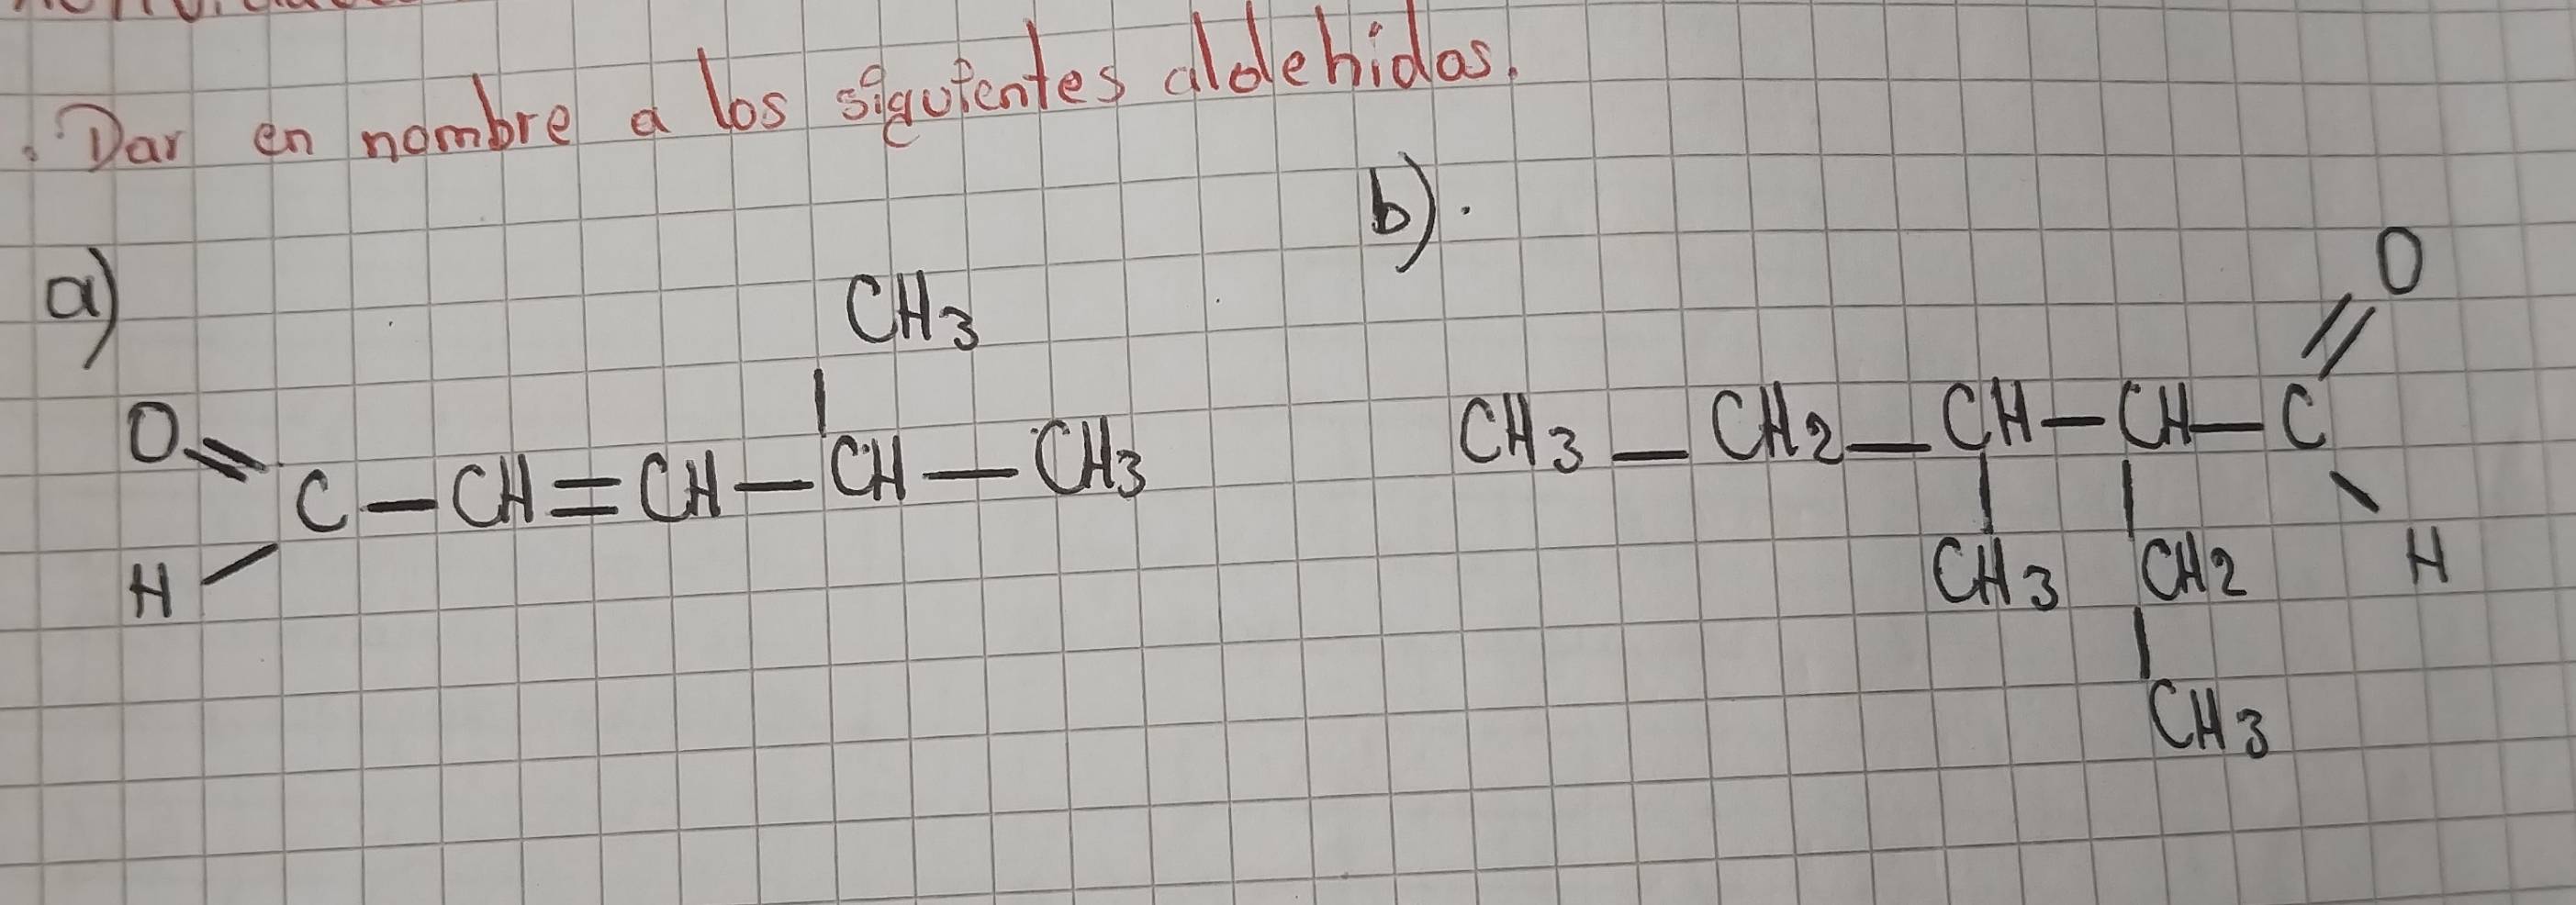 . Dar en nombre a los siguientes aldehidos.
a)
b).
CH3
O
C — CH = CH — CH — CH3
H
O
CH3 — CH2 — CH — CH — C
CH3 CH2 H
CH3